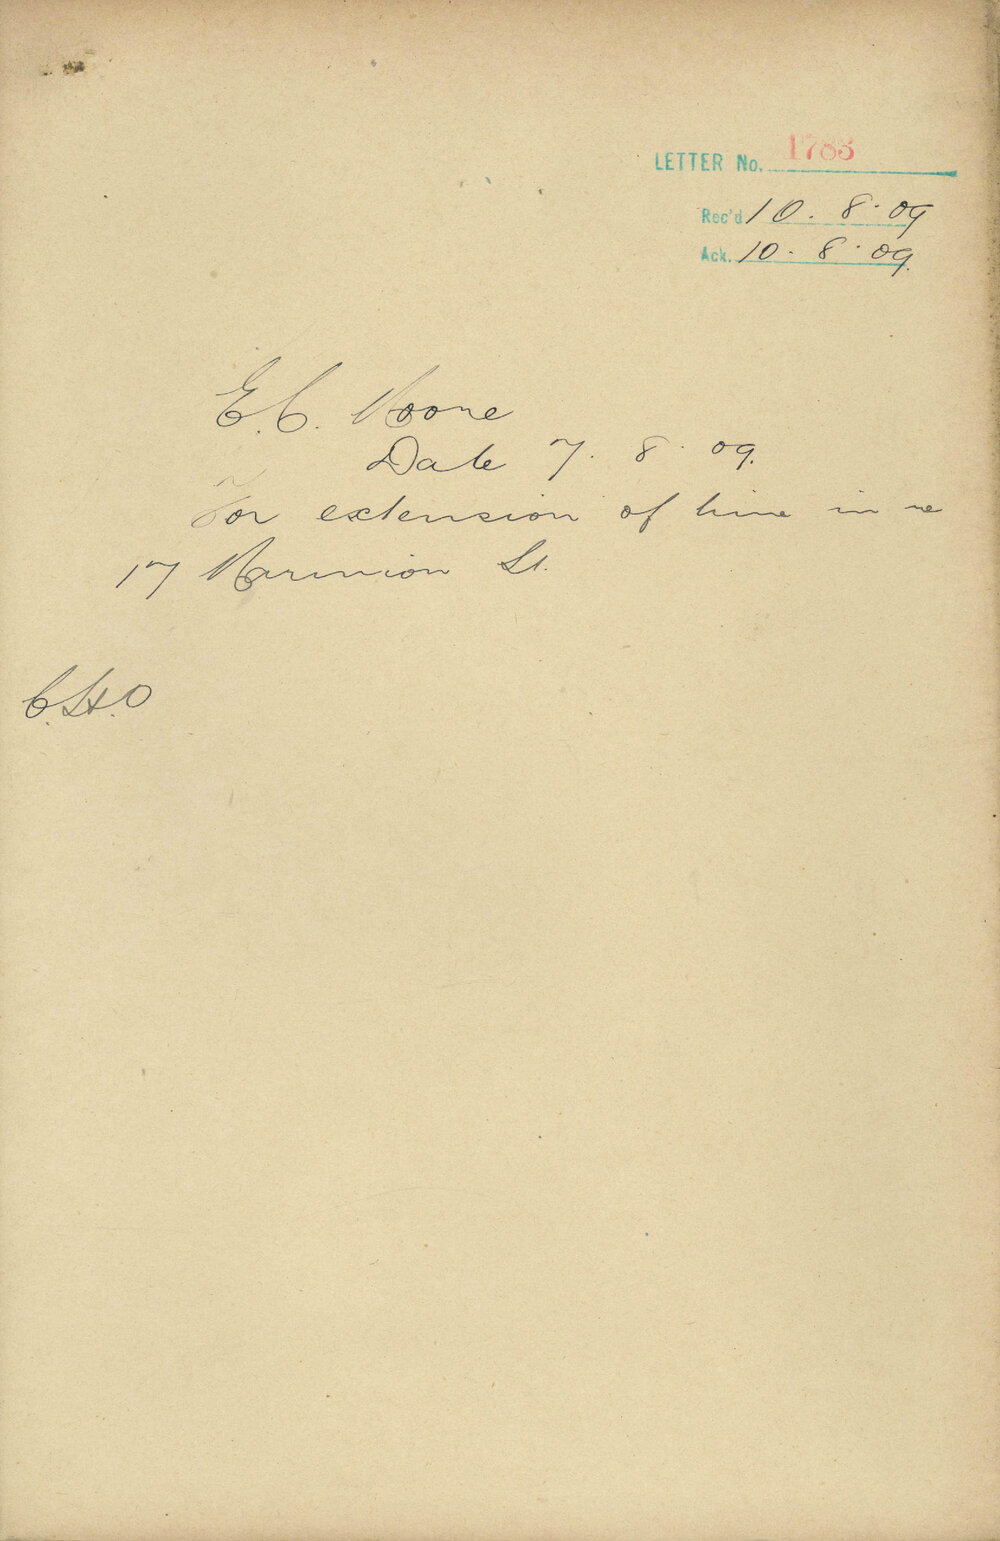 LETTER No. 1783
Rec'd 10. 8. 09
Ack. 10. 8. 09.
E. C. Moore
Date 7. 8. 09.
For extension of time in re
17 Marmion St.
C.H.O